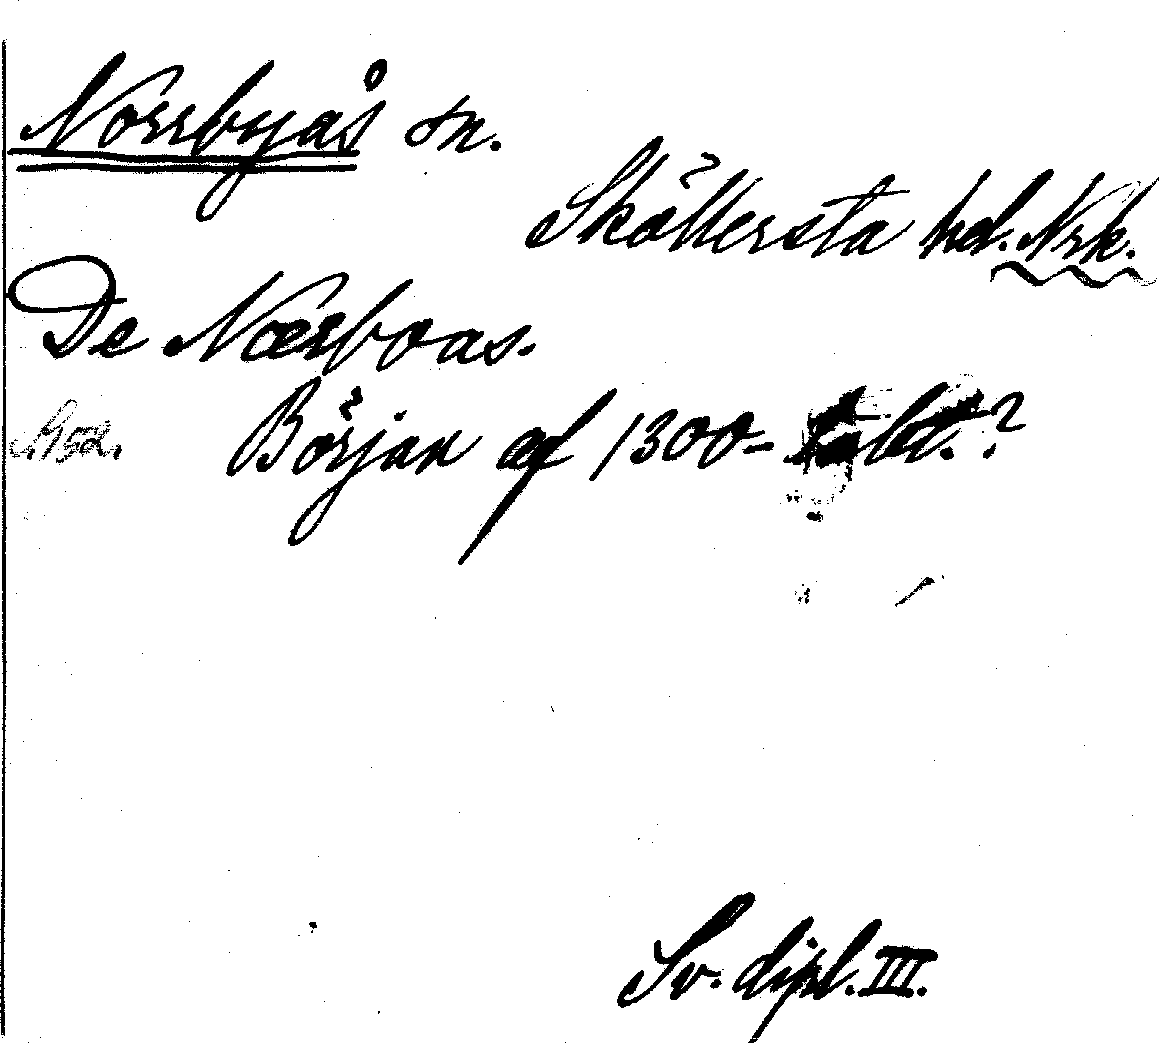 Norrbyås sn.
Sköllersta hd. Nrk.
De Nærboas.
Början af 1300-talet.?
Sv. dipl. III.